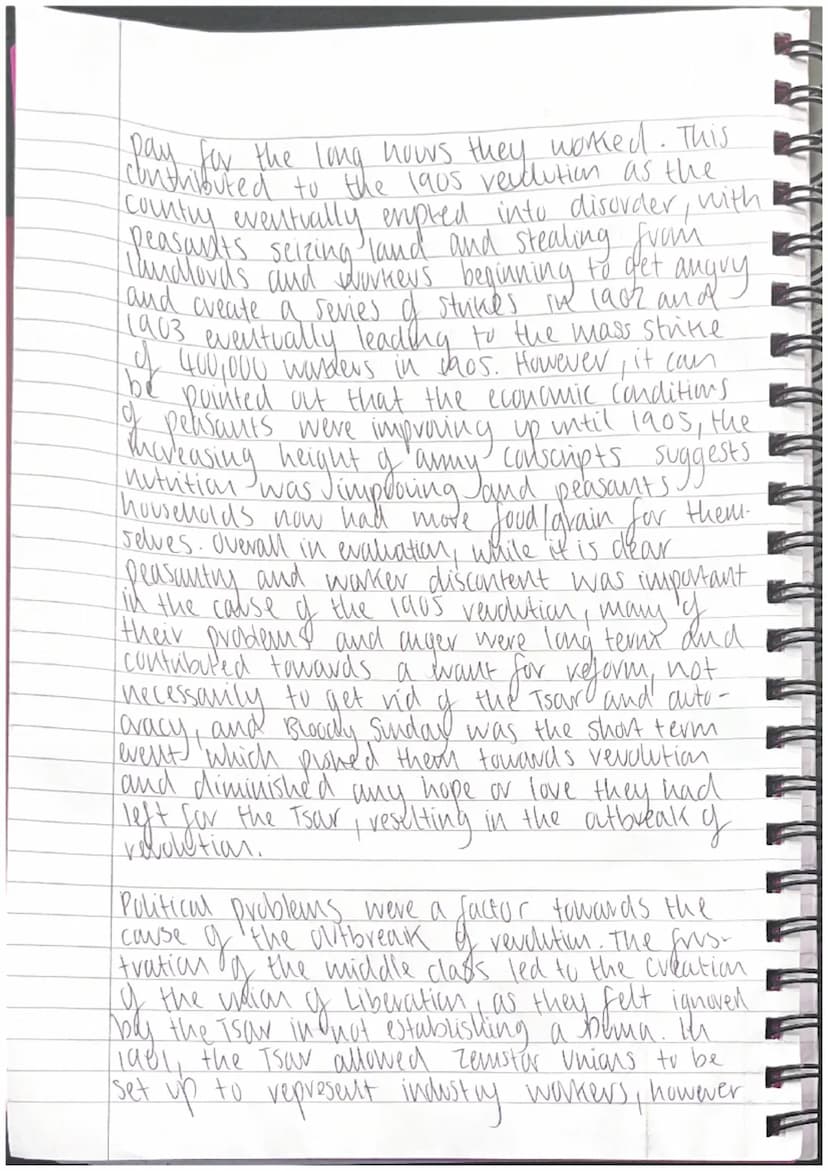 pay for the long hours they worked. This
contributed to the 1905 revolution as the
country eventually erupted into disorder, with
peasants seizing land and stealing from
landlords and workers beginning to get angry
and create a series of strikes in 1902 and
1903 eventually leading to the mass strike
of 400,000 workers in 1905. However, it can
be pointed out that the economic conditions
of peasants were improving up until 1905, the
increasing height of army conscripts suggests
nutrition was improving and peasants
households now had more food/grain for them-
selves. Overall in evaluation, while it is clear
peasantry and worker discontent was important
in the cause of the 1905 revolution, many of
their problems and anger were long term and
contributed towards a want for reform, not
necessarily to get rid of the Tsar and auto-
cracy, and Bloody Sunday was the short term
event which pushed them towards revolution
and diminished any hope or love they had
left for the Tsar, resulting in the outbreak of
revolution.
Political problems were a factor towards the
cause of the outbreak of revolution. The frus-
tration of the middle class led to the creation
of the union of Liberation, as they felt ignored
by the Tsar in not establishing a Duma. In
1901, the Tsar allowed Unions to be
set up to represent industry workers, however